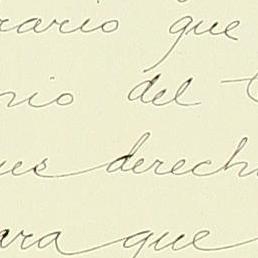 rario que
nio del
ues derech
ara que